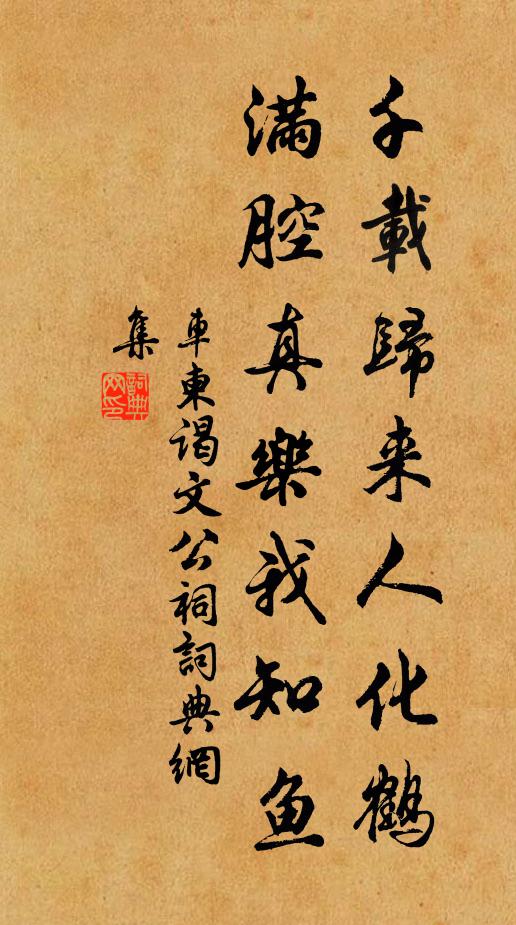 千載歸来人化鶴
滿腔真樂我知鱼
車東谒文公祠詞典網
集
詞典
网印